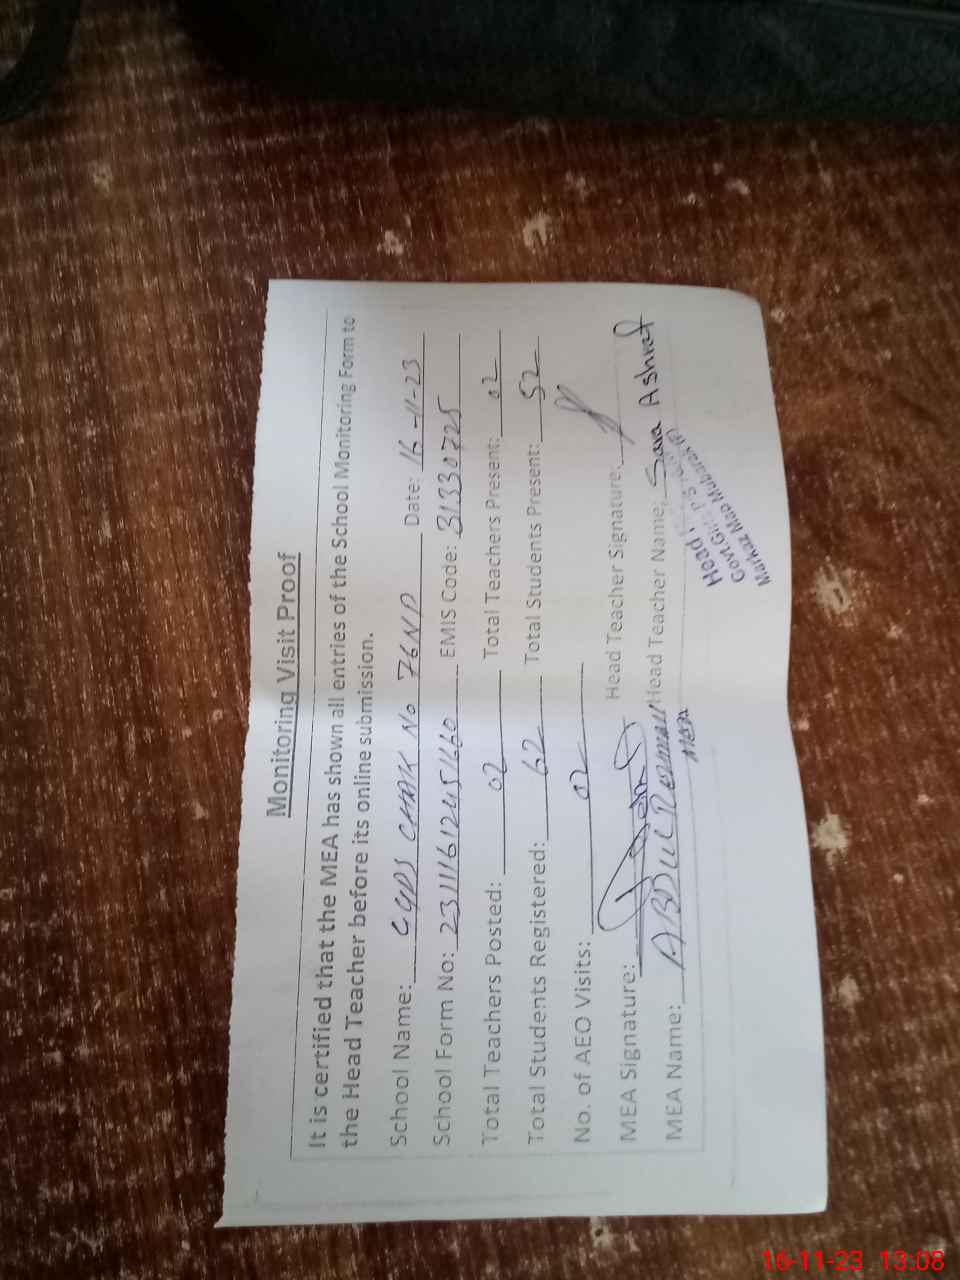 Monitoring Visit Proof
It is certified that the MEA has shown all entries of the School Monitoring Form to
the Head Teacher before its online submission.
School Name: GGPS CHAK No 76NP Date: 16-11-23
School Form No: EMIS Code: 31330725
Total Teachers Posted: 02 Total Teachers Present: 02
Total Students Registered: 62 Total Students Present: 52
No. of AEO Visits: 02
MEA Signature: Head Teacher Signature:
MEA Name: ABDUL REHMAN Head Teacher Name: Sara Ashraf
MEA
Head
Govt.
Markaz Mao Mubarak
16-11-23 13:08